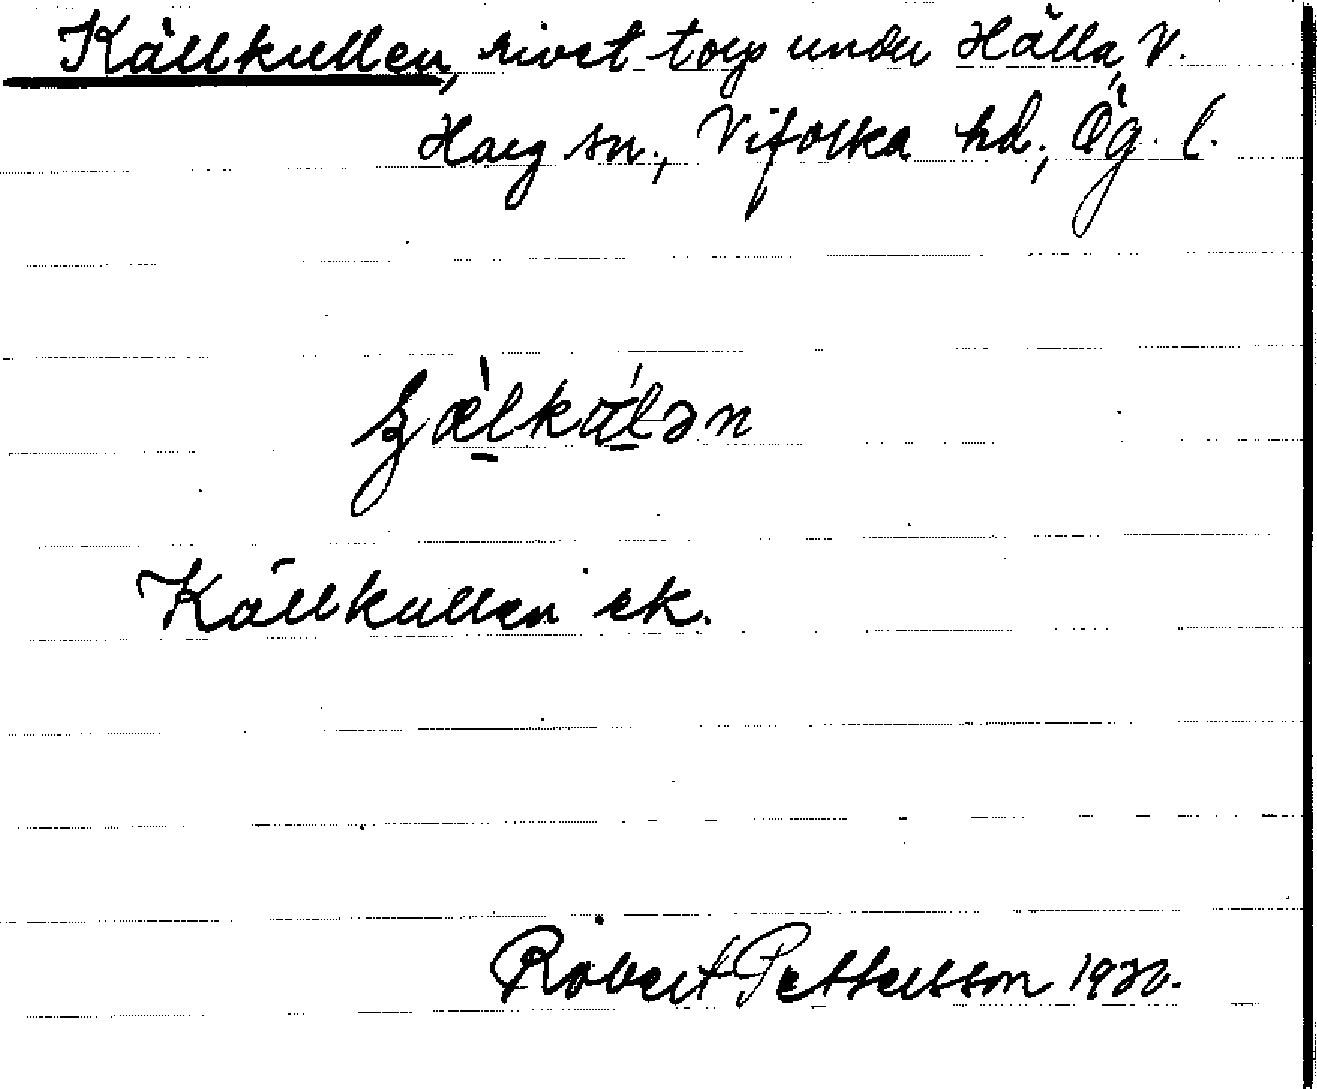 Källkullen, rivet torp under Hälla, V.
Harg sn., Vifolka hd., Ög. l.
Källkullen ek.
Robert Pettersson 1930.